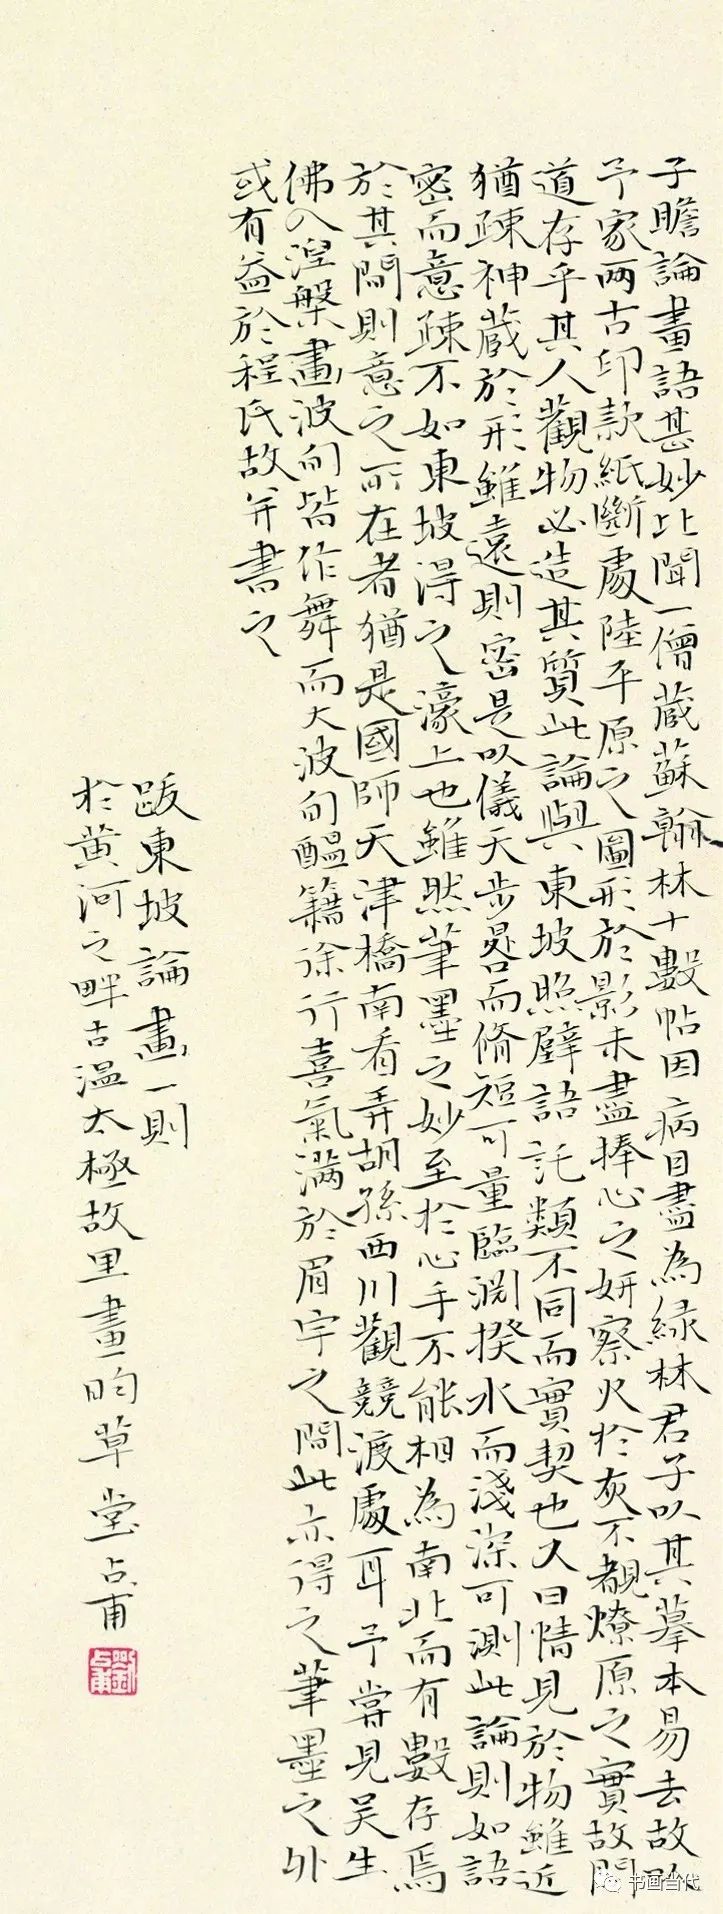 子瞻論畫語甚妙比聞一僧藏蘇翰林十數帖因病目盡為緑林君子以其摹本易去故
予家兩古印款紙斷處陸平原之圖形於影未盡捧心之妍察火於灰不覩燎原之實故問
道存乎其人觀物必造其質此論與東坡照壁語託類不同而實契也又曰情見於物雖近
猶疎神藏於形雖遠則密是以儀天步晷而脩短可量臨淵揆水而淺深可測此論則如語
密而意疎不如東坡得之濠上也雖然筆墨之妙至於心手不能相為南北而有數存焉
於其間則意之所在者猶是國師天津橋南看弄胡孫西川觀競渡處耳予嘗見吴生
佛入涅槃畫波旬皆作舞而大波旬醖籍徐行喜氣滿於眉宇之間此亦得之筆墨之外
或有益於程氏故并書之
跋東坡論畫一則
於黄河之畔古温太極故里畫昀草堂占甫
书画当代